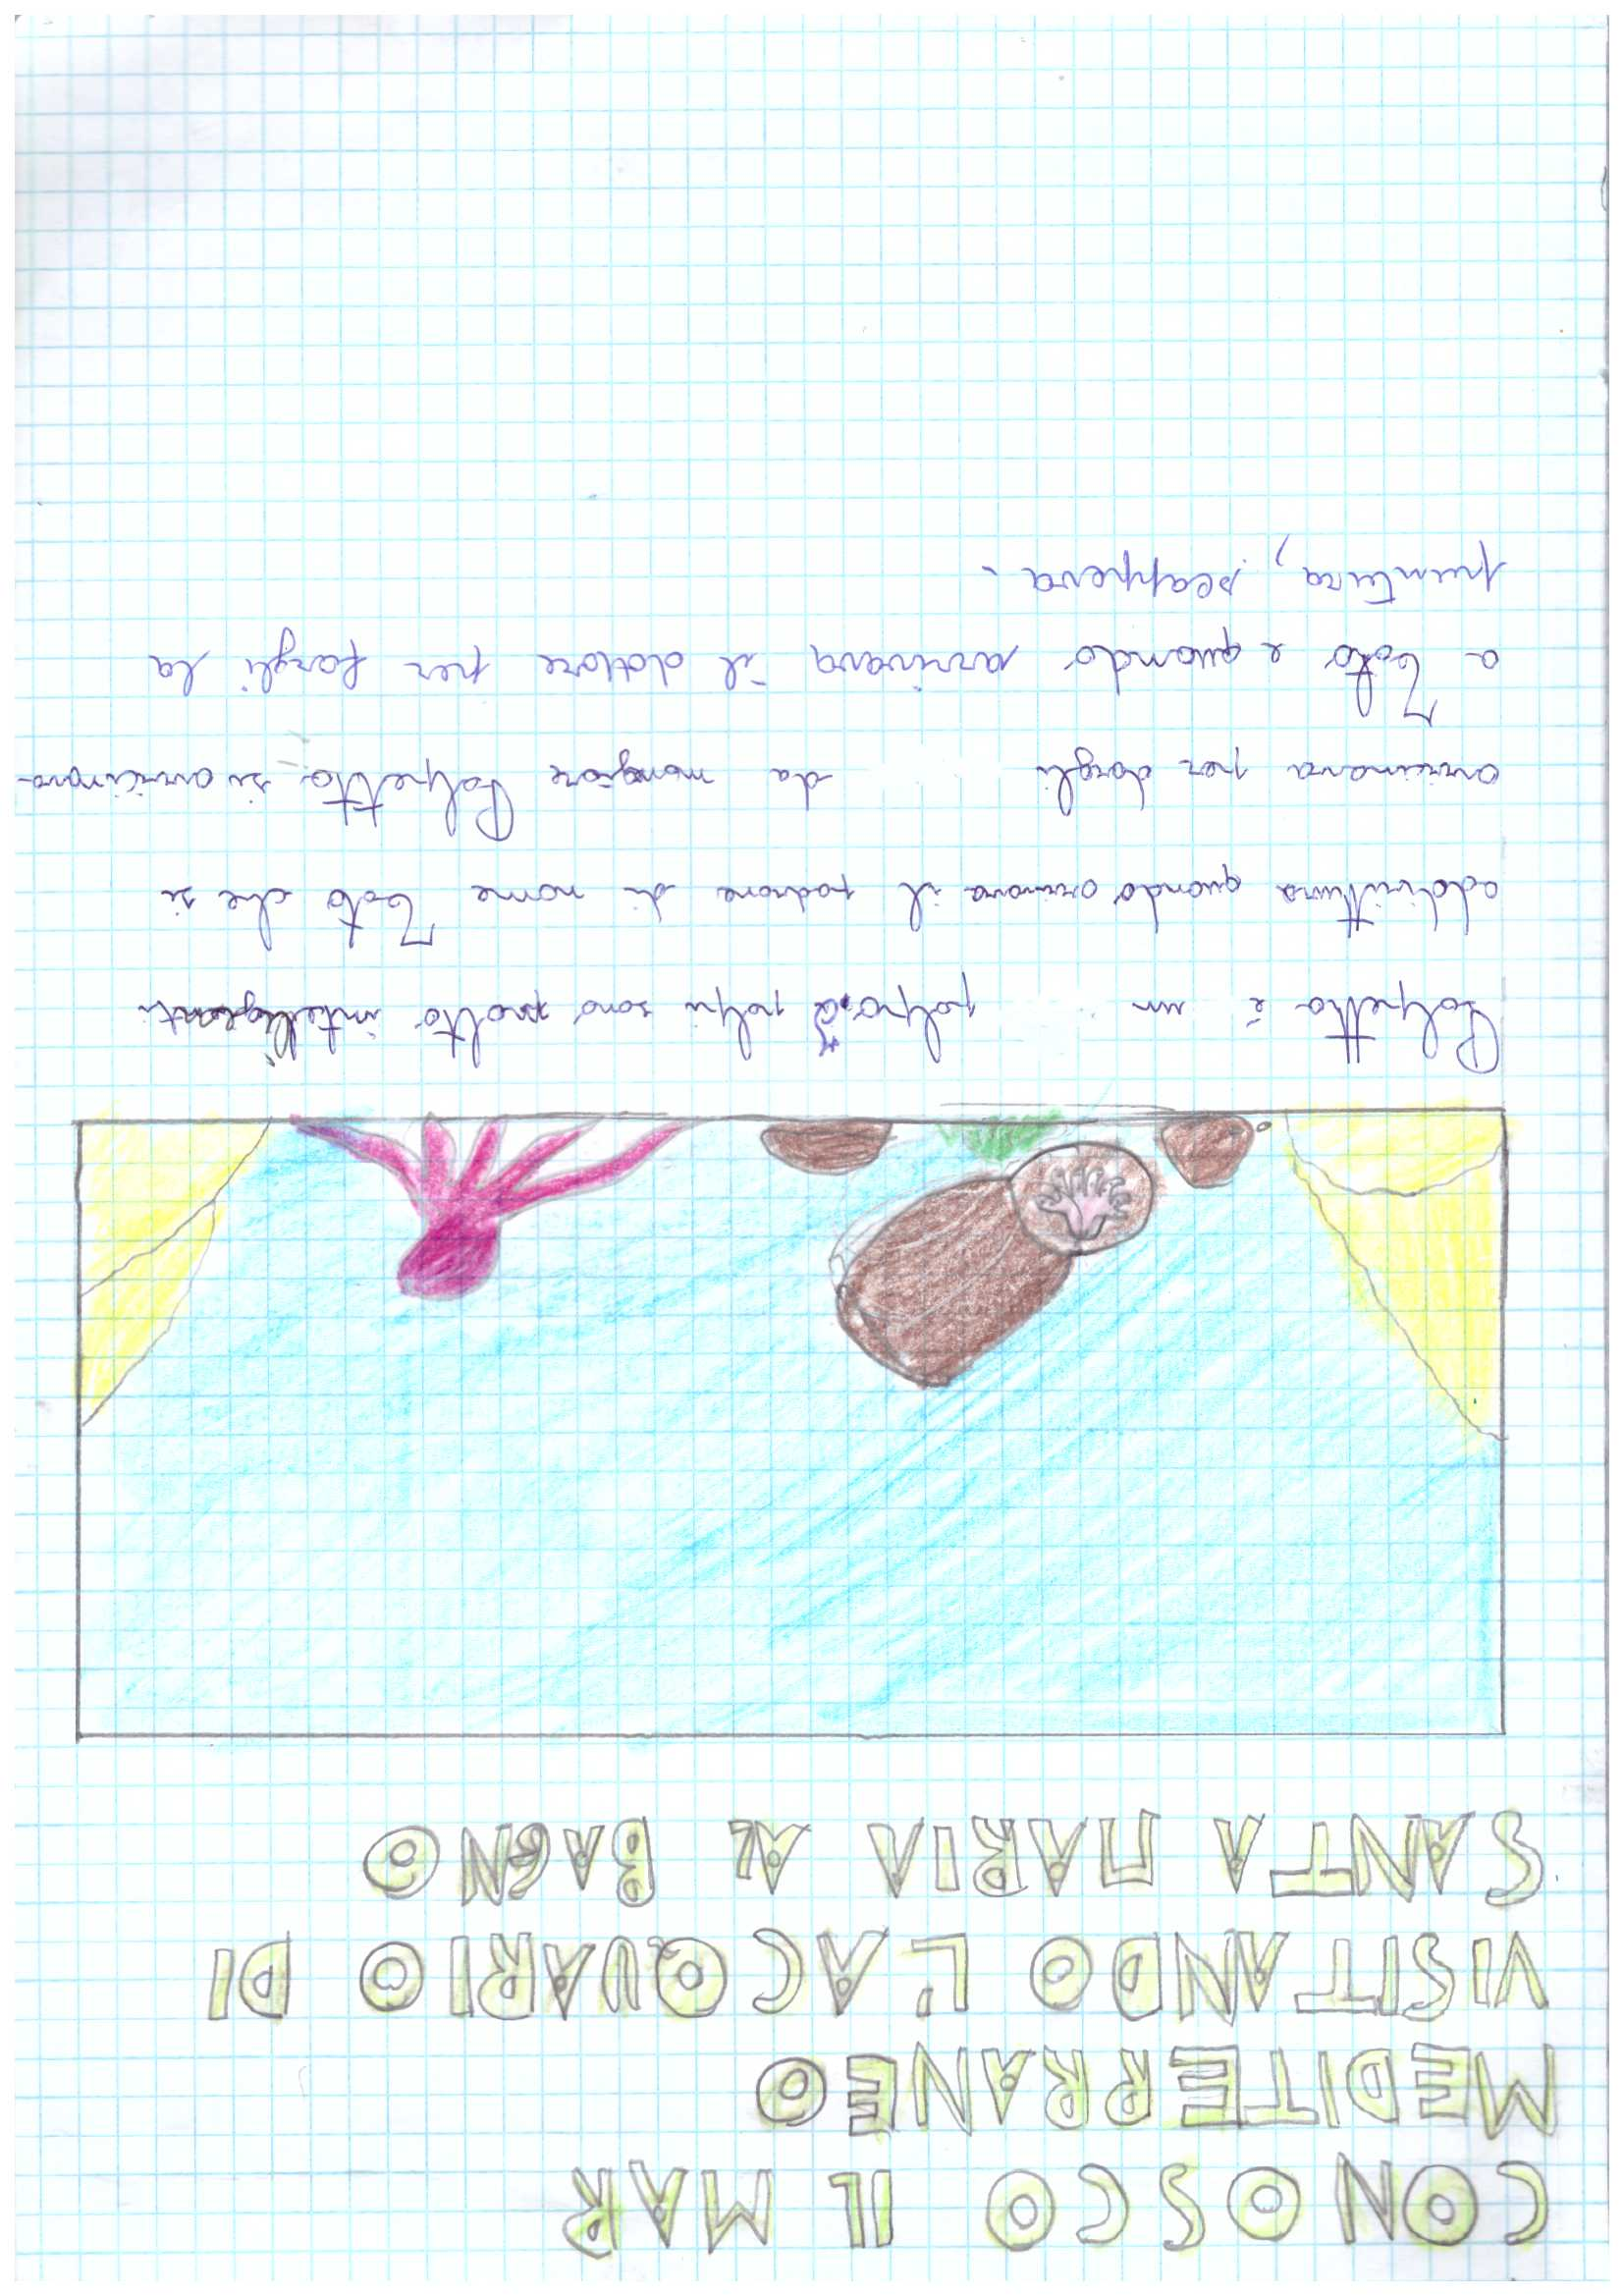 CONOSCO IL MAR
MEDITERRANEO
VISITANDO L'ACQUARIO DI
SANTA MARIA AL BAGNO
Polpetto è un polpo. I polpi sono molto intelligenti
addirittura quando arrivava il padrone di nome Totò che si
avvicinava per dargli da mangiare Polpetto si avvicinava
a Totò e quando arrivava il dottore per fargli la
puntura, scappava.